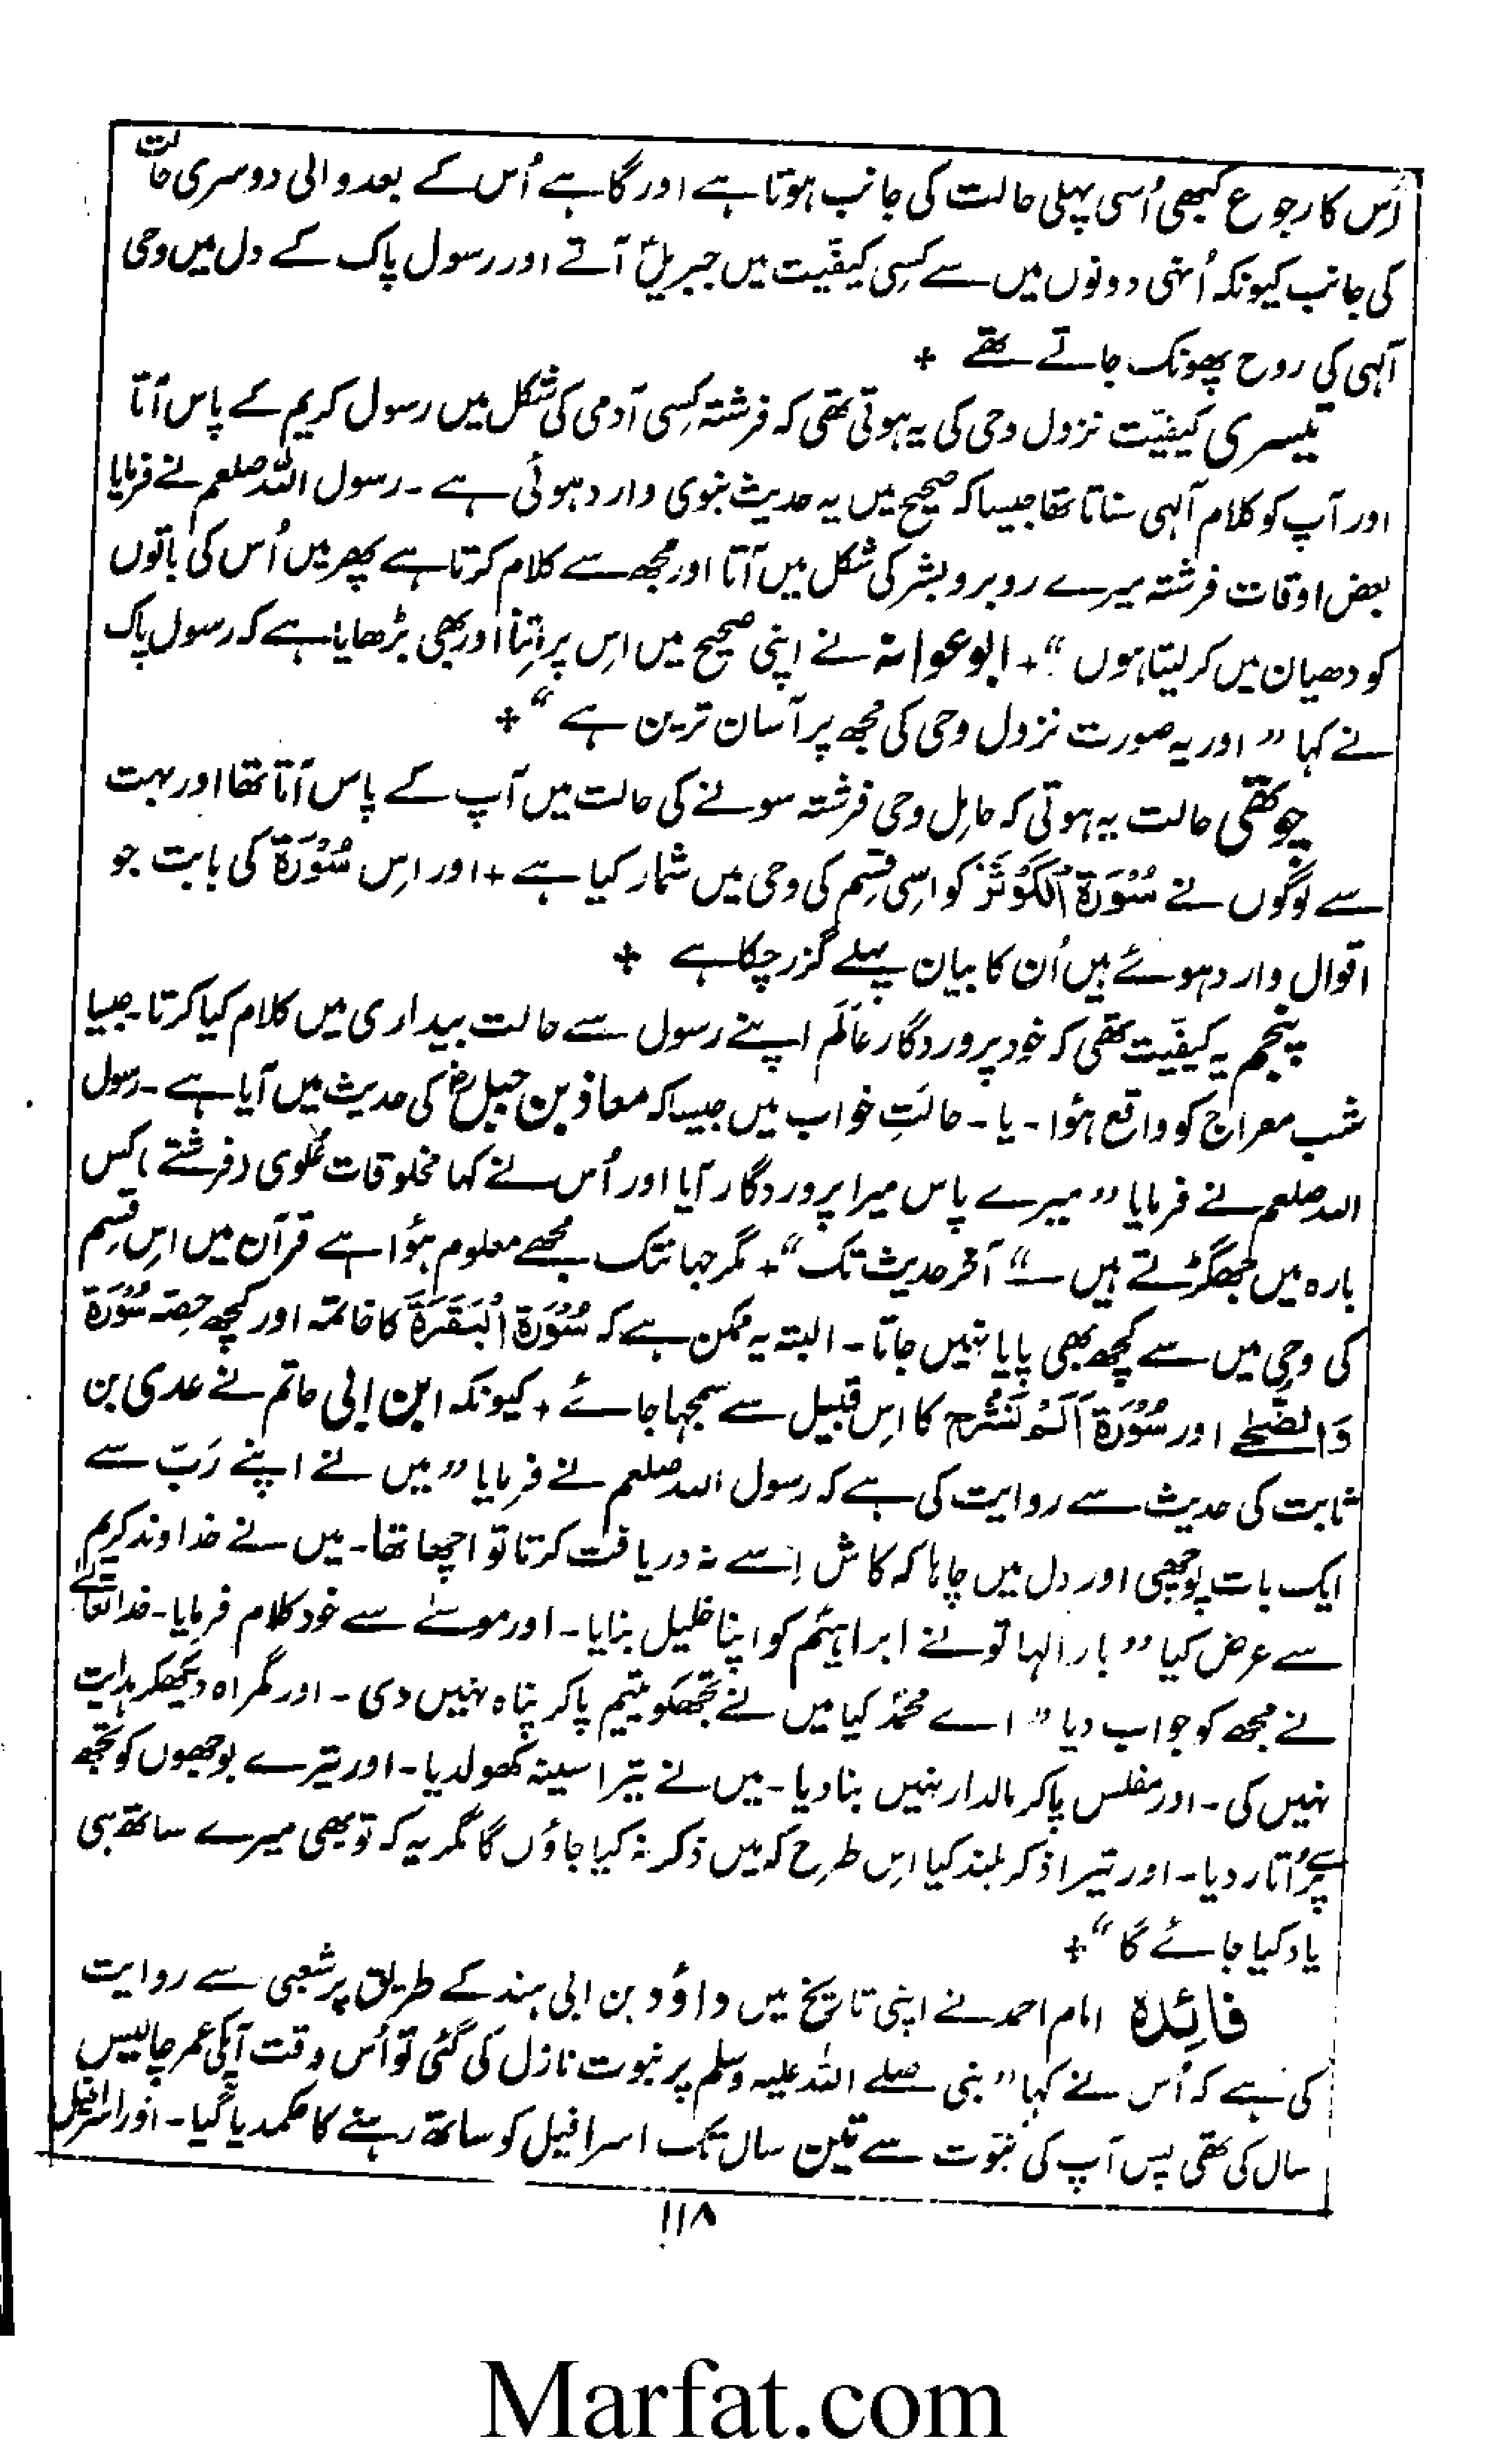 اُس کا رجوع کبھی اُسی پہلی حالت کی جانب ہوتا ہے اور گاہے اُس کے بعد والی دوسری حالت
کی جانب کیونکہ اُنہی دونوں میں سے کِسی کیفیّت میں جبریلؑ آتے اور رسول پاک کے دل میں وحی
آلہی کی روح پھونک جاتے تھے +
تیسری کیفیّت نزول وحی کی یہ ہوتی تھی کہ فرشتہ کِسی آدمی کی شکل میں رسول کریم کے پاس آتا
اور آپ کو کلام آلہی سناتا تھا جیسا کہ صحیح میں یہ حدیث نبوی وارد ہوئی ہے ۔ رسول اللہ صلعم نے فرمایا
بعض اوقات فرشتہ میرے روبرو بشر کی شکل میں آتا اور مجھ سے کلام کرتا ہے پھر میں اُس کی باتوں
کو دھیان میں کر لیتا ہوں “+ ابو عوانۃ نے اپنی صحیح میں اِس پر اِتنا اور بھی بڑھایا ہے کہ رسول پاک
نے کہا ” اور یہ صورت نزول وحی کی مجھ پر آسان ترین ہے “ +
چوتھی حالت یہ ہوتی کہ حامِل وحی فرشتہ سونے کی حالت میں آپ کے پاس آتا تھا اور بہت
سے لوگوں نے سُوْرَۃ اَلْکَوْثَرْ کو اِسی قِسم کی وحی میں شمار کیا ہے + اور اِس سُوْرَۃ کی بابت جو
اقوال وارد ہوئے ہیں اُن کا بیان پہلے گزر چکا ہے +
پنجم یہ کیفیّت تھی کہ خود پروردگار عَالَم اپنے رسول سے حالت بیداری میں کلام کیا کرتا جیسا
شب معراج کو واقع ہؤا ۔ یا ۔ حالتِ خواب میں جیسا کہ معاذ بن جبلؓ کی حدیث میں آیا ہے ۔ رسول
اللہ صلعم نے فرمایا ” میرے پاس میرا پروردگار آیا اور اُس نے کہا مخلوقات عُلوی (فرشتے) کس
بارہ میں جھگڑتے ہیں “ آخر حدیث تک “+ مگر جہانتک مجھے معلوم ہؤا ہے قرآن میں اِس قِسم
کی وحِی میں سے کچھ بھی پایا نہیں جاتا ۔ البتہ یہ ممکن ہے کہ سُوْرَۃ الْبَقَرَۃ کا خاتمہ اور کچھ حِصّہ سُوْرَۃ
وَالضُّحٰے اور سُوْرَۃ اَلَمْ نَشْرح کا اِس قبیل سے سمجہا جائے + کیونکہ ابن ابی حاتم نے عدی بن
ثابت کی حدیث سے روایت کی ہے کہ رسول اللہ صلعم نے فرمایا ” میں نے اپنے رَبّ سے
ایک بات پوچھی اور دل میں چاہا کہ کاش اِسے نہ دریافت کرتا تو اچھا تھا ۔ میں نے خداوند کریم
سے عرض کیا ” بار الہا تو نے ابراہیمؑ کو اپنا خلیل بنایا ۔ اور موسےٰ سے خود کلام فرمایا ۔ خدا تعالےٰ
نے مجھے کو جواب دیا ” اے محمدؐ کیا میں نے تجھکو یتیم پاکر پناہ نہیں دی ۔ اور گمراہ دیکھکر ہدایت
نہیں کی ۔ اور مفلس پاکر مالدار نہیں بنا دیا ۔ میں نے تیرا سینہ کھولدیا ۔ اور تیرے بوجھوں کو تجھ
پر سے اُتار دیا ۔ اور تیرا ذکر بلند کیا اِس طرح کہ میں ذکر نہ کیا جاؤں گا مگر یہ کہ تو بھی میرے ساتھ ہی
یاد کیا جائے گا “+
فَائِدہ امام احمد نے اپنی تاریخ میں داؤد بن ابی ہند کے طریق پر شعبی سے روایت
کی ہے کہ اُس نے کہا ” نبی صلے اللہ علیہ وسلم پر نبوت نازل کی گئی تو اُس وقت آپکی عمر چالیس
سال کی تھی پس آپ کی نبوّت سے تین سال تک اسرافیل کو ساتھ رہنے کا حکمدیا گیا ۔ اور اسرافیل
۱۱۸
Marfat.com